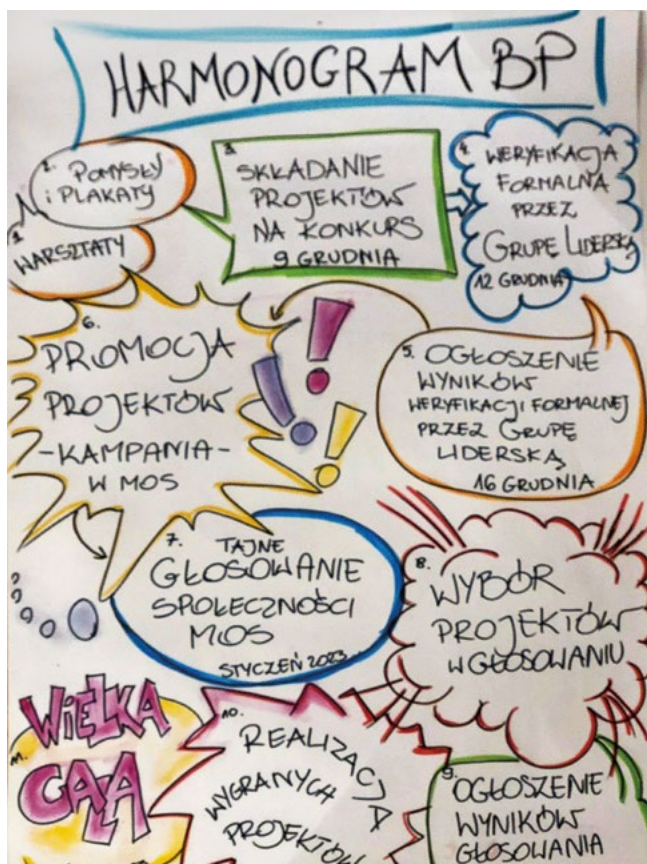 HARMONOGRAM BP
1.
WARSZTATY
2. POMYSŁY
i PLAKATY
3.
SKŁADANIE
PROJEKTÓW
NA KONKURS
9 GRUDNIA
4. WERYFIKACJA
FORMALNA
PRZEZ
GRUPĘ LIDERSKĄ
12 GRUDNIA
5. OGŁOSZENIE
WYNIKÓW
WERYFIKACJI FORMALNEJ
PRZEZ GRUPĘ
LIDERSKĄ
16 GRUDNIA
6.
PROMOCJA
PROJEKTÓW
-KAMPANIA-
W MOS
7. TAJNE
GŁOSOWANIE
SPOŁECZNOŚCI
MOS
STYCZEŃ 2023
8.
WYBÓR
PROJEKTÓW
W GŁOSOWANIU
9.
OGŁOSZENIE
WYNIKÓW
GŁOSOWANIA
10.
REALIZACJA
WYGRANYCH
PROJEKTÓW
11.
WIELKA
GALA